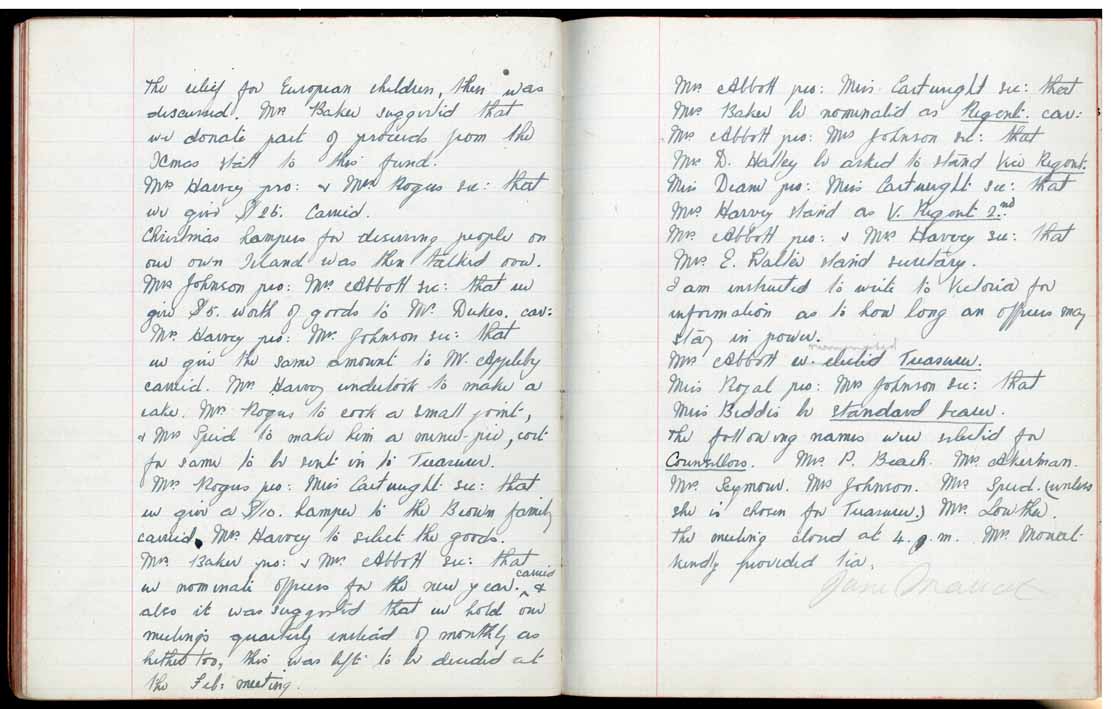 The relief for European children, then was
discussed. Mrs Baker suggested that
we donate part of proceeds from the
Xmas stall to this fund.
Mrs Harvey pro: & Mrs Rogers sec: that
we give $25. Carried.
Christmas hampers for deserving people on
our own Island was then talked over.
Mrs Johnson pro: Mrs Abbott sec: that we
give $5. worth of goods to Mr. Dukes. car:
Mrs Harvey pro: Mrs Johnson sec: that
we give the same amount to W. Appleby
carried. Mrs Harvey undertook to make a
cake. Mrs Rogers to cook a small joint,
& Mrs Speed to make him a mince-pie, cost
for same to be sent in to Treasurer.
Mrs Rogers pro: Miss Cartwright sec: that
we give a $10. hamper to the Brown family
carried, Mrs Harvey to select the goods.
Mrs Baker pro: & Mrs Abbott sec: that
we nominate officers for the new year. carried &
also it was suggested that we hold our
meetings quarterly instead of monthly as
hither too, this was left to be decided at
the Feb: meeting.
Mrs Abbott pro: Miss Cartwright sec: that
Mrs Baker be nominated as Regent. car:
Mrs Abbott pro: Mrs Johnson sec: that
Mrs D. Halley be asked to stand Vice Regent.
Miss Deam pro: Miss Cartwright sec: that
Mrs Harvey stand as V. Regent 2nd
Mrs Abbott pro: & Mrs Harvey sec: that
Mrs E. Walter stand secretary.
I am instructed to write to Victoria for
information as to how long an officers may
stay in power.
renominated
Mrs Abbott re-elected Treasurer.
Miss Royal pro: Mrs Johnson sec: that
Miss Beddis be standard bearer.
The following names were selected for
Counsellors. Mrs P. Beach. Mrs Akerman.
Mrs Seymour. Mrs Johnson. Mrs Speed. (unless
she is chosen for Treasurer.) Mrs Lowther.
The meeting closed at 4. p.m. Mrs Mouat
kindly provided tea.
Jane Mouat